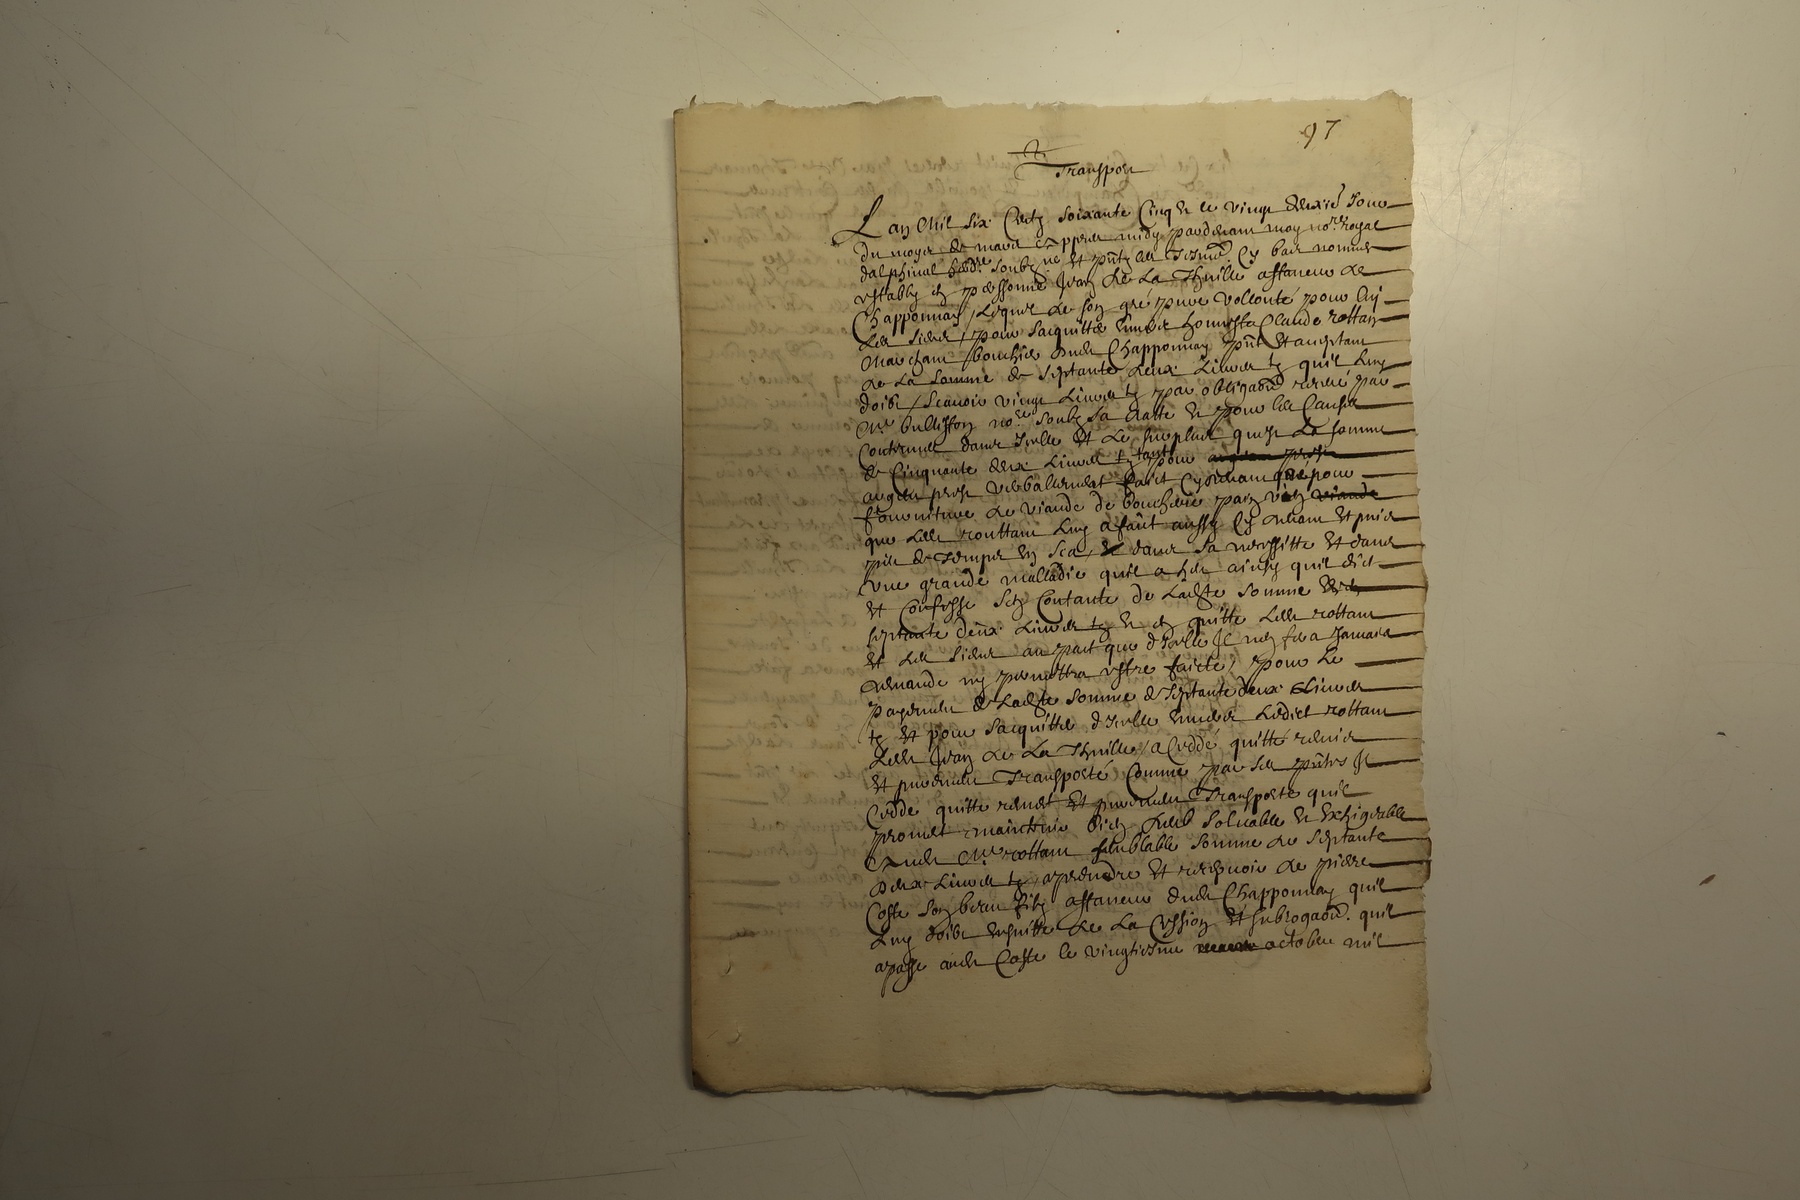 97
Transport
Lan Mil six Centz soixante Cinq & le vingt deuxie Jour
du moys de mars appres midy pardevant moy no.re royal
dalphinal soubz.ne et pnts les Tesmo. Cy bas nommes
estably en personne Jean de La Thuille affaneur de
Chapponnay / Lequel de son gré pure vollonté pour luy
Les siens / pour sacquitter envers honneste Claude rottan
Marchant bouchier dudt Chapponnay pnt et acceptant
de La somme de septante deux Livres tz quil luy
doibt / scavoir vingt Livres tz par obligaon receue par
Me bullisson no.re soubz sa datte & pour les Causes
Contenues dans Icelle et Le surplus quest La somme
de Cinquante deux Livres tz tant pour
argent preste verballement faict Cydevant que pour
fourniture de viande de boucherie pain vin viande
que Ledt routtan luy a faict aussy Cy devant et puis
peu de Temps en sca / & dans sa necessitte et dans
une grande malladie quil a heu ainsy quil dict
et Confesse sen Contante de Ladte somme de
septante deux Livres tz & en quitte Ledt rottan
et Les siens au pact que dIcelle Il nen fera Jamais
demande ny permettra estre faicte / pour Le
payement de Ladte somme de septante deux Livres
tz et pour sacquitter dIcelle envers Ledict rottan
Ledt Jean de La Thuille / a Ceddé quitté remis
et purement Transporté Comme par ses pntes Il
Cedde quitte remet et purement Transporte quil
promet maintenir bien deub soluable & exhigeable
Audt Me rottan semblable somme de septante
deux Livres tz aprendre et recepvoir de pierre
Coste son beau filz affaneur dudt Chapponnay quil
luy doibt ensuitte de La Cession et subrogaon. quil
apasse audt Coste le vingtiesme octobre mil